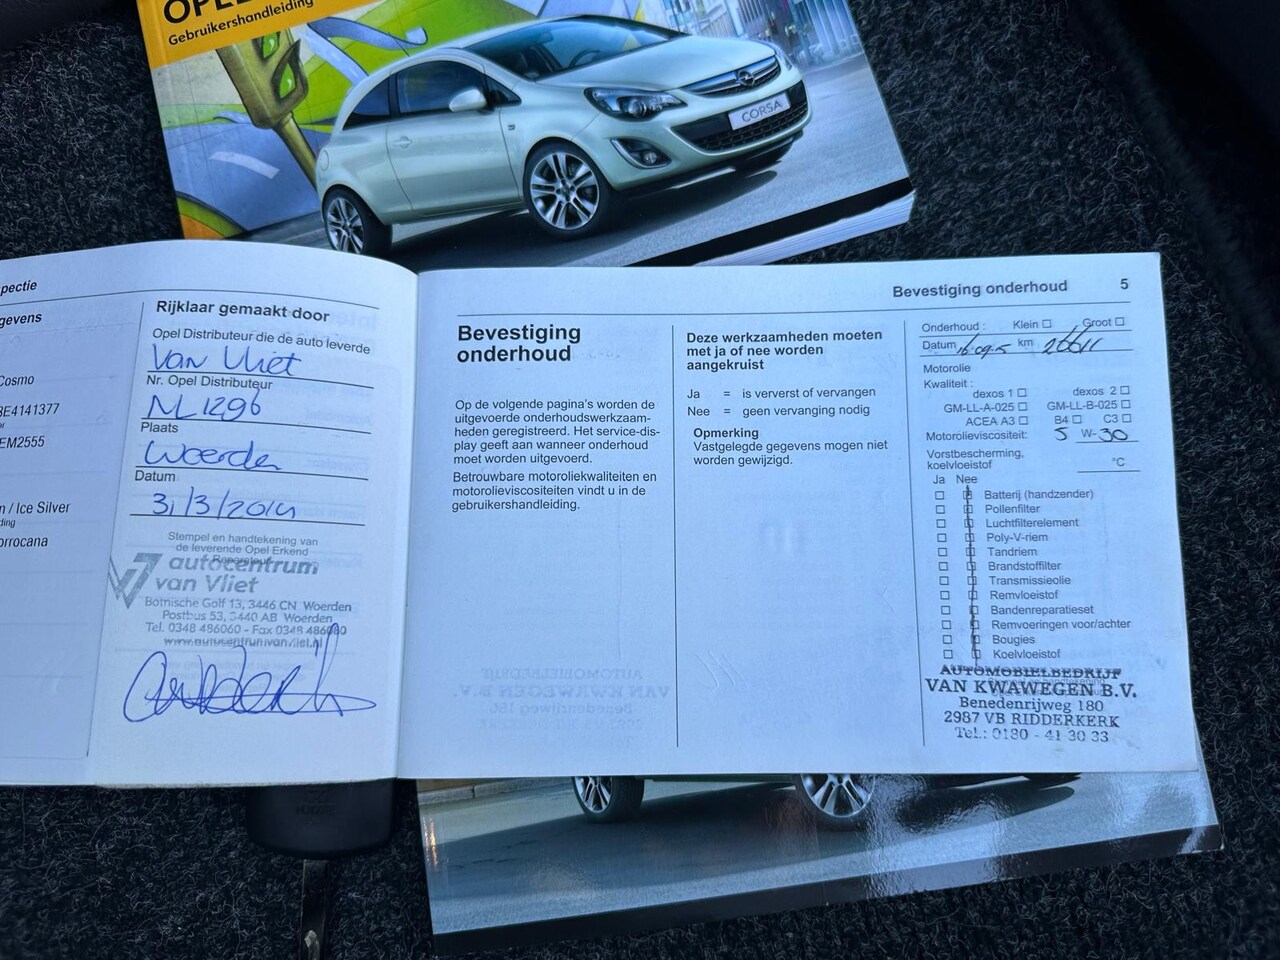 OPEL
Gebruikershandleiding
CORSA
pectie
gevens
Cosmo
BE4141377
EM2555
n / Ice Silver
ding
orrocana
Rijklaar gemaakt door
Opel Distributeur die de auto leverde
Van Vliet
Nr. Opel Distributeur
NL1296
Plaats
Woerden
Datum
31/3/2014
Stempel en handtekening van
de leverende Opel Erkend
Reparateur
autocentrum
van Vliet
Botnische Golf 13, 3446 CN Woerden
Postbus 53, 3440 AB Woerden
Tel. 0348 486060 - Fax 0348 486080
www.autocentrumvanvliet.nl
Bevestiging
onderhoud
Op de volgende pagina's worden de
uitgevoerde onderhoudswerkzaam-
heden geregistreerd. Het service-dis-
play geeft aan wanneer onderhoud
moet worden uitgevoerd.
Betrouwbare motoroliekwaliteiten en
motorolieviscositeiten vindt u in de
gebruikershandleiding.
Deze werkzaamheden moeten
met ja of nee worden
aangekruist
Ja = is ververst of vervangen
Nee = geen vervanging nodig
Opmerking
Vastgelegde gegevens mogen niet
worden gewijzigd.
Bevestiging onderhoud 5
Onderhoud : Klein Groot
Datum km 26611
Motorolie
Kwaliteit :
dexos 1 dexos 2
GM-LL-A-025 GM-LL-B-025
ACEA A3 B4 C3
Motorolieviscositeit: 5 W-30
Vorstbescherming,
koelvloeistof °C
Ja Nee
Batterij (handzender)
Pollenfilter
Luchtfilterelement
Poly-V-riem
Tandriem
Brandstoffilter
Transmissieolie
Remvloeistof
Bandenreparatieset
Remvoeringen voor/achter
Bougies
Koelvloeistof
AUTOMOBIELBEDRIJF
VAN KWAWEGEN B.V.
Benedenrijweg 180
2987 VB RIDDERKERK
Tel.: 0180 - 41 30 33